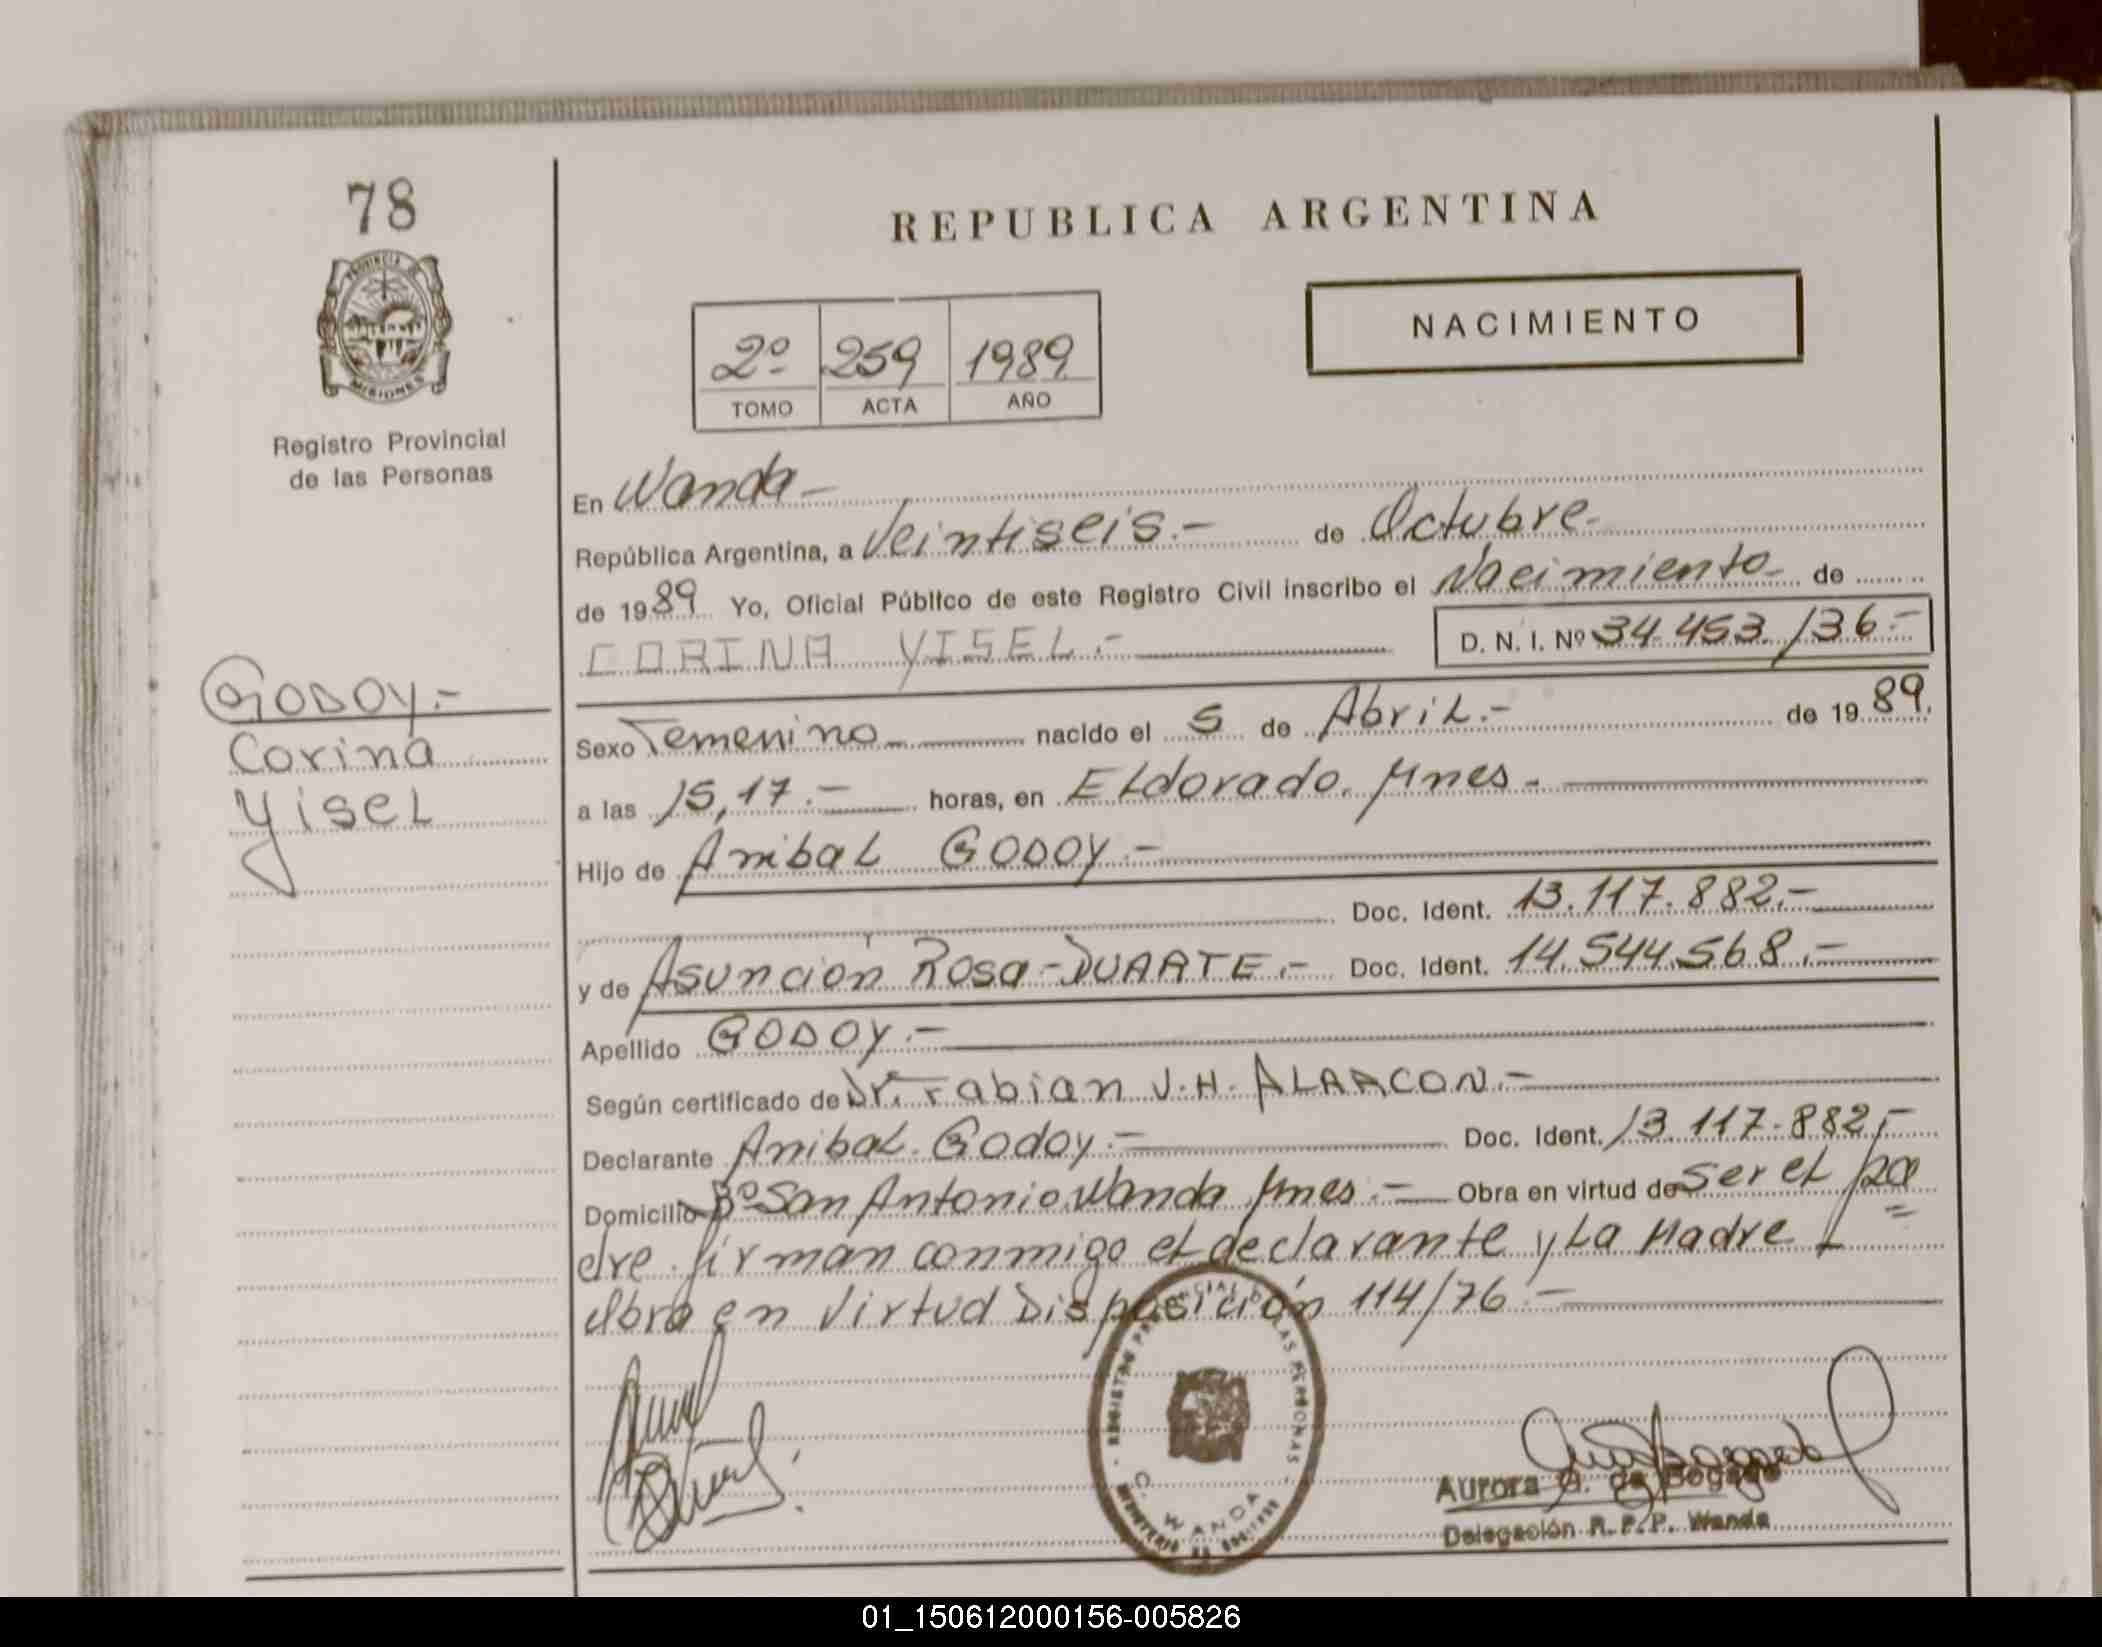 78
PROVINCIA DE
MISIONES
Registro Provincial
de las Personas
GODOY.-
Corina
Yisel
REPUBLICA ARGENTINA
NACIMIENTO
2º 259 1989
TOMO ACTA AÑO
En Wanda -
República Argentina, a Veintiseis.- de Octubre.-
de 1989 Yo, Oficial Público de este Registro Civil inscribo el Nacimiento- de
CORINA YISEL.- D. N. I. Nº 34.453.136.-
Sexo Femenino- nacido el 5 de Abril.- de 1989.
a las 15,17.- horas, en Eldorado. Mnes.-
Hijo de Anibal GODOY.-
Doc. Ident. 13.117.882.-
y de Asunción Rosa-DUARTE.- Doc. Ident. 14.544.568.-
Apellido GODOY.-
Según certificado de Dr. Fabian J.H. ALARCON.-
Declarante Anibal Godoy.- Doc. Ident. 13.117.882,-
Domicilio Bº San Antonio.Wanda Mnes.- Obra en virtud de ser el pa
dre firman conmigo el declarante y La Madre
Obra en Virtud Disposición 114/76.-
REGISTRO PROVINCIAL DE LAS PERSONAS
WANDA
Aurora G. de Bogado
Delegación R.P.P. Wanda
01_150612000156-005826